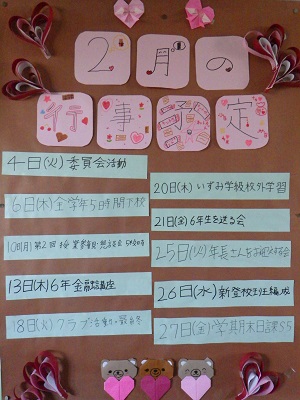 2月の
行事予定
4日(火)委員会活動
6日(木)全学年5時間下校
10日(月)第2回
13日(木)6年金融講座
18日(火)クラブ活動
20日(木)いずみ学級校外学習
21日(金)6年生を送る会
25日(火)年長さんを
26日(水)新登校班編成
27日(金)学期末日課S5